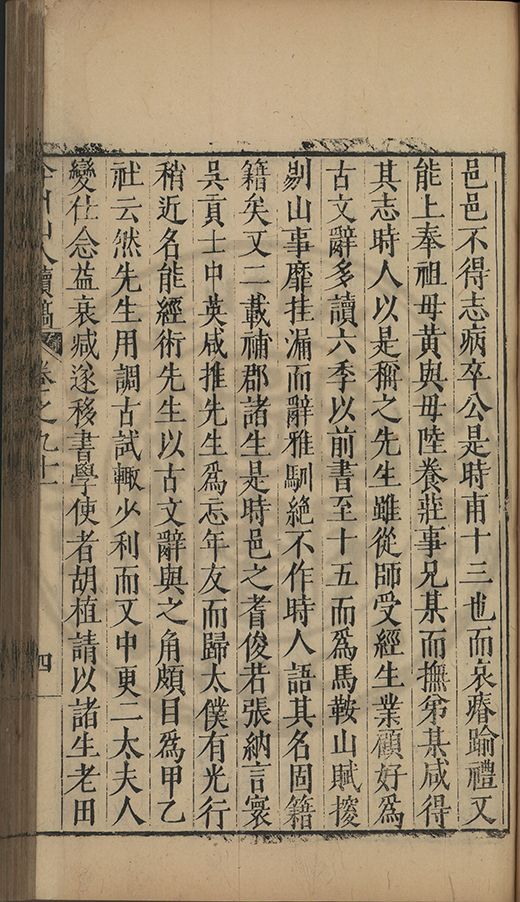 邑邑不得志病卒公是時甫十三也而哀瘠踰禮又
能上奉祖母黃與母陸養莊事兄某而撫弟某咸得
其志時人以是稱之先生雖從師受經生業顧好爲
古文辭多讀六季以前書至十五而爲馬鞍山賦擬
剔山事靡挂漏而辭雅馴絶不作時人語其名固籍
籍矣又二載補郡諸生是時邑之耆俊若張納言寰
吳貢士中英咸推先生爲忘年友而歸太僕有光行
稍近名能經術先生以古文辭與之角頗目爲甲乙
社云然先生用調古試輙少利而又中更二太夫人
變仕念益衰臧遂移書學使者胡植請以諸生老田
弇州山人續稿 卷之九十 四